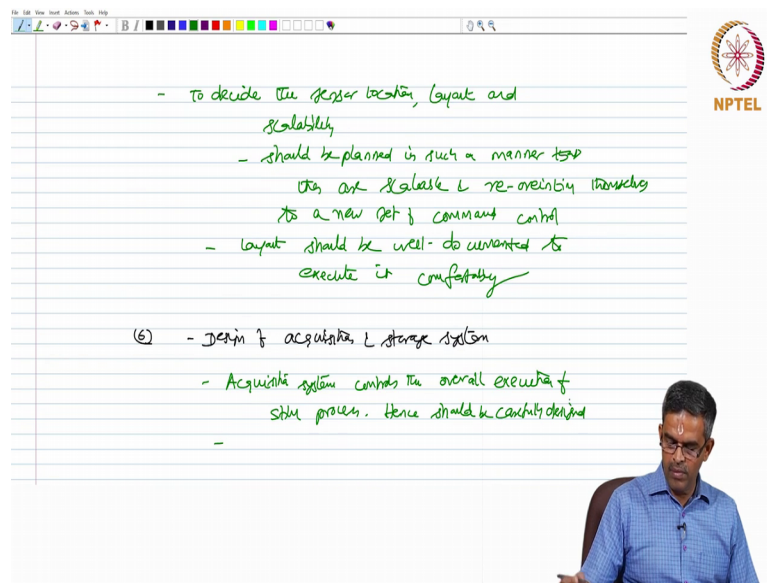 File Edit View Insert Actions Tools Help
B I
NPTEL
- To decide the sensor location, layout and
scalability
- should be planned in such a manner
they are scalable & re-orienting themselves
to a new set of command control
- Layout should be well-documented to
execute it comfortably
(6) - Design of acquisition & storage system
- Acquisition system controls the overall execution of
SHM process. Hence should be carefully designed
-